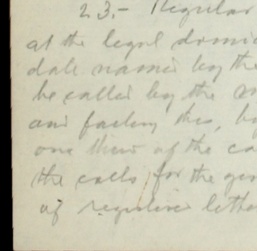 23.- Regular
at the legal domi
date named by the
be called by the
and failing this, by
one third of the ca
the calls for the gen
of requiring lette